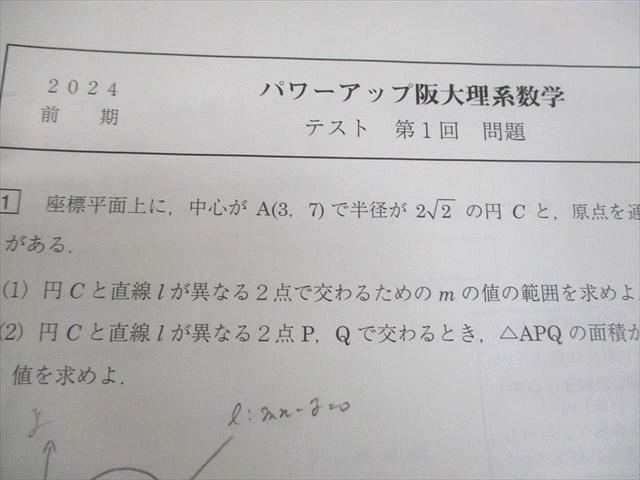 2024
前 期
パワーアップ阪大理系数学
テスト 第1回 問題
1 座標平面上に，中心が A(3, 7) で半径が 2√2 の円 C と，原点を通
がある．
(1) 円 C と直線 l が異なる2点で交わるための m の値の範囲を求めよ．
(2) 円 C と直線 l が異なる2点 P, Q で交わるとき，△APQ の面積が
値を求めよ．
l: mx-y=0
y